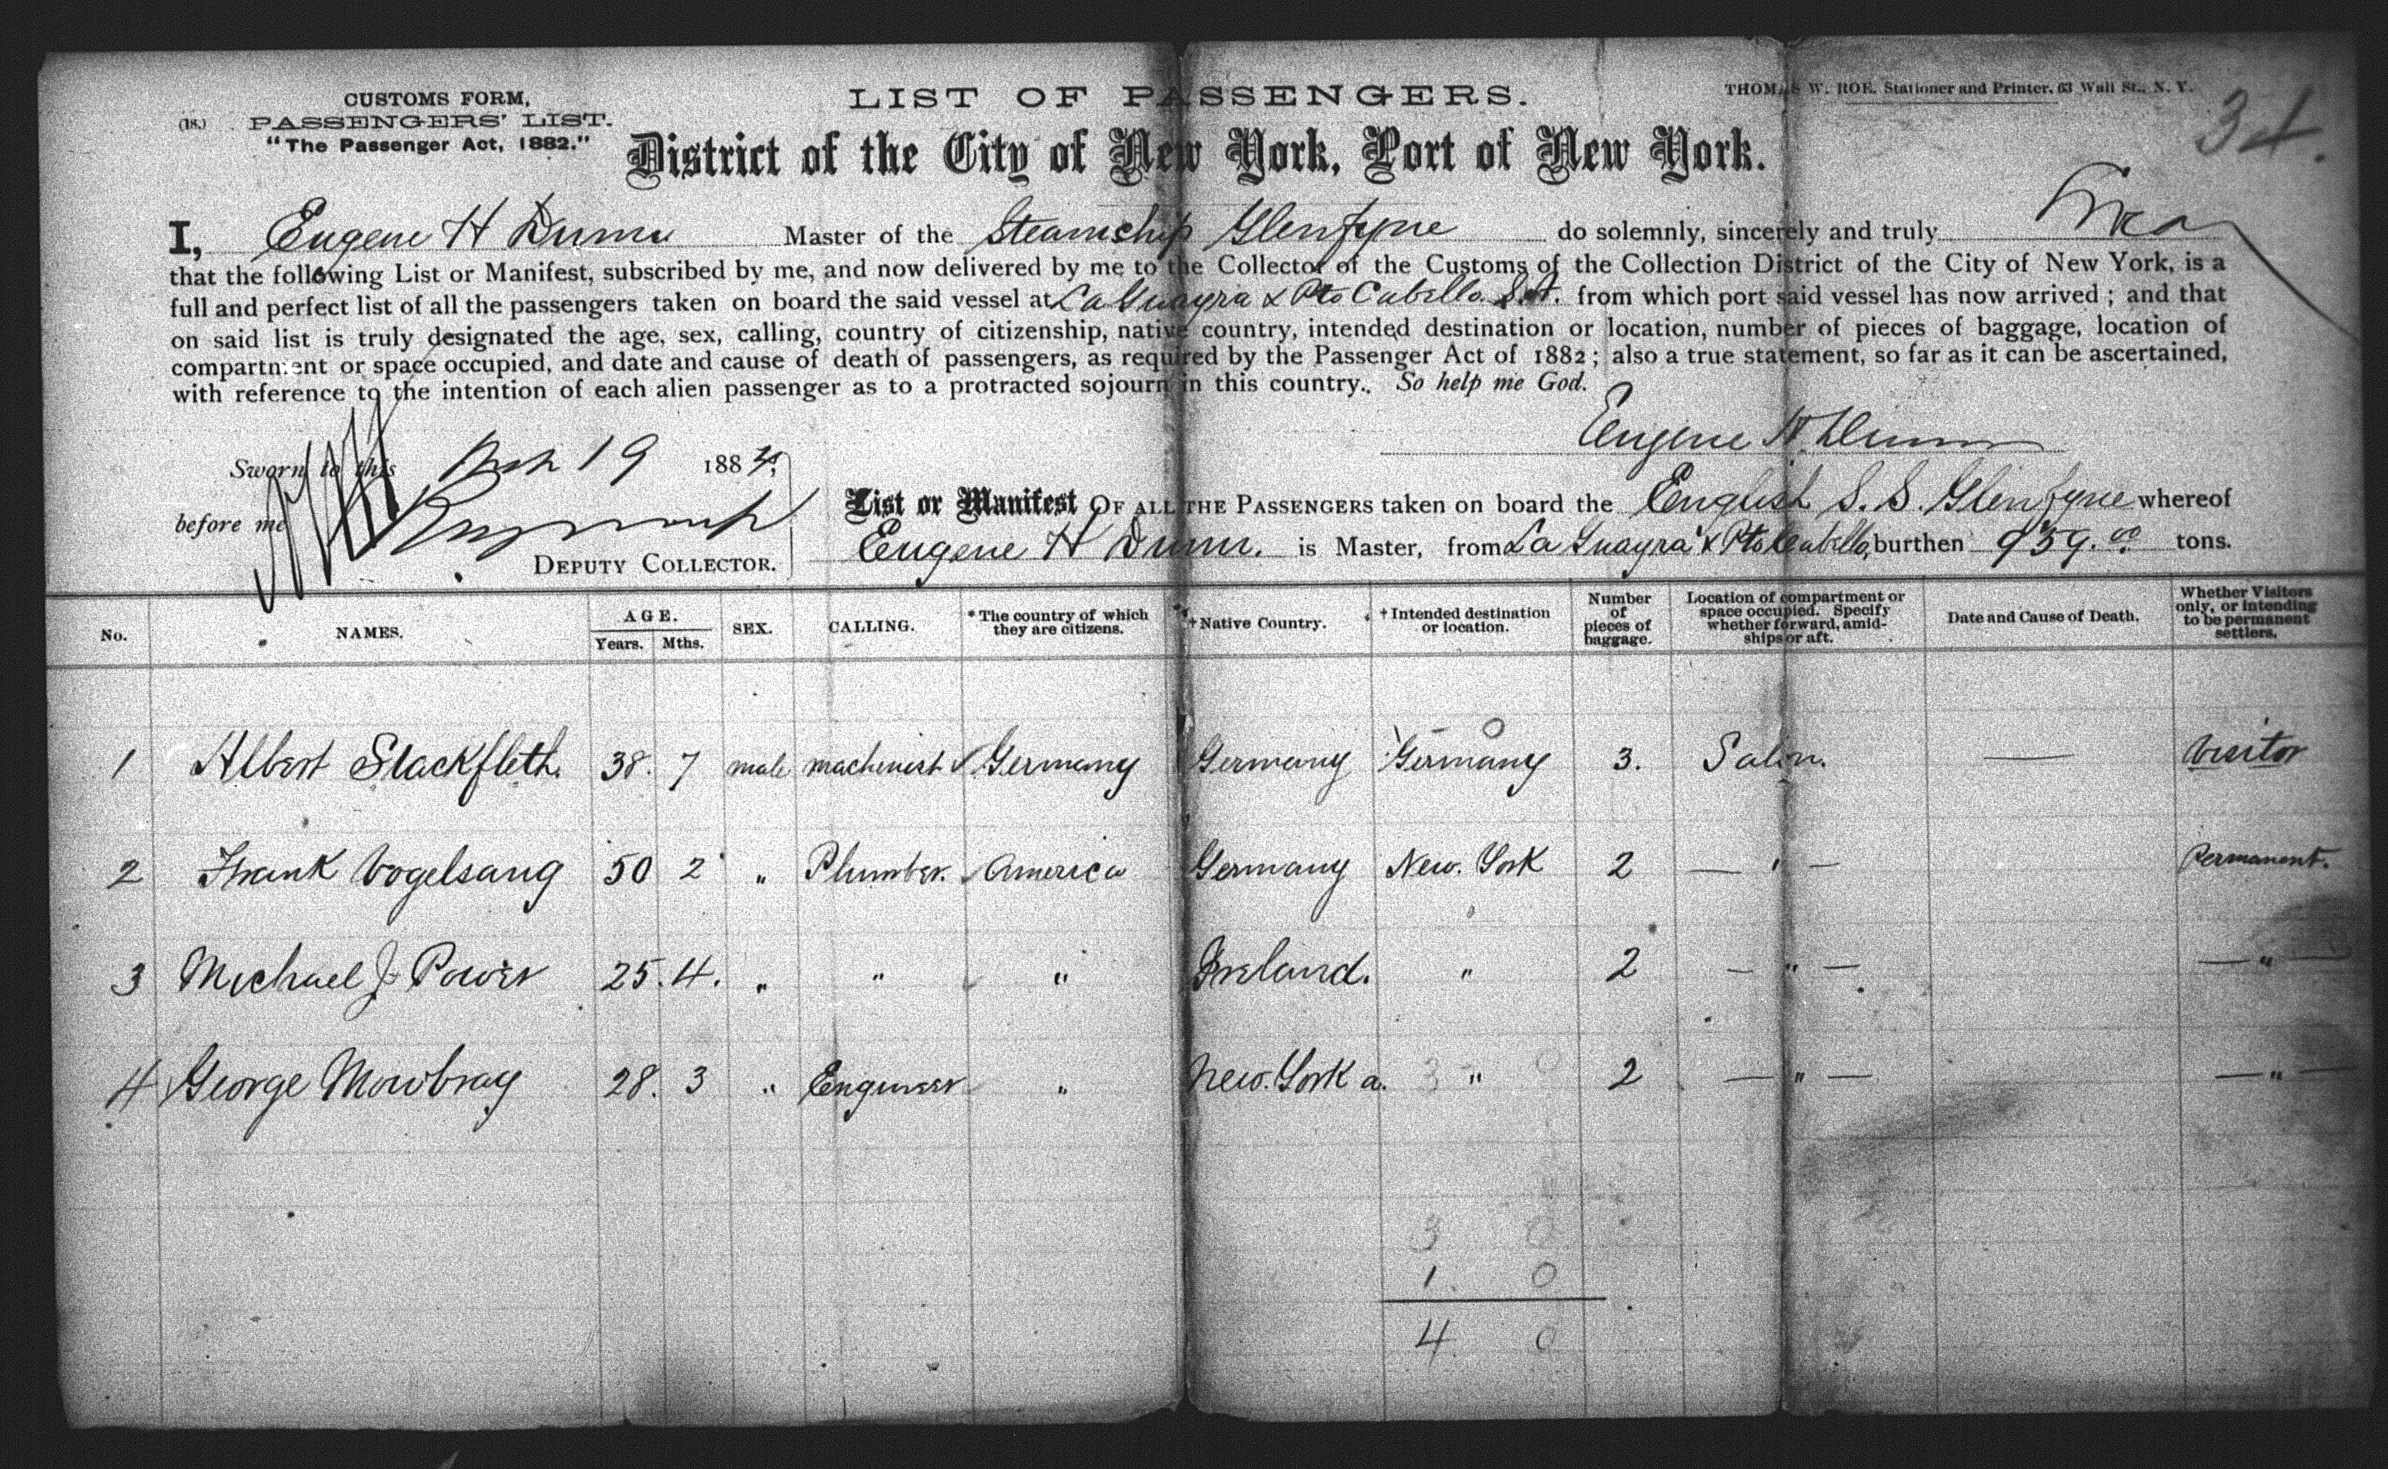 CUSTOMS FORM,
(18.) PASSENGERS' LIST.
"The Passenger Act, 1882."
LIST OF PASSENGERS.
THOMAS W. ROE, Stationer and Printer, 63 Wall St., N. Y.
34.
District of the City of New York, Port of New York.
I, Eugene H Dunn Master of the Steamship Glenfyne do solemnly, sincerely and truly Swear
that the following List or Manifest, subscribed by me, and now delivered by me to the Collector of the Customs of the Collection District of the City of New York, is a
full and perfect list of all the passengers taken on board the said vessel at La Guayra & Pto Cabello from which port said vessel has now arrived; and that
on said list is truly designated the age, sex, calling, country of citizenship, native country, intended destination or location, number of pieces of baggage, location of
compartment or space occupied, and date and cause of death of passengers, as required by the Passenger Act of 1882; also a true statement, so far as it can be ascertained,
with reference to the intention of each alien passenger as to a protracted sojourn in this country. So help me God.
Eugene H. Dunn
Sworn to this 19 188
before me
DEPUTY COLLECTOR.
List or Manifest OF ALL THE PASSENGERS taken on board the English S. S. Glenfyne whereof
Eugene H Dunn. is Master, from La Guayra & Pto Cabello, burthen 959.00 tons.
No. NAMES. AGE. Years. Mths. SEX. CALLING. *The country of which they are citizens. †Native Country. †Intended destination or location. Number of pieces of baggage. Location of compartment or space occupied. Specify whether forward, amidships or aft. Date and Cause of Death. Whether Visitors only, or intending to be permanent settlers.
1 Albert Stackfleth. 38. 7 male machinist Germany Germany Germany 3. Salon. — Visitor
2 Frank Vogelsang 50 2 " Plumber. America Germany New. York 2 — " — Permanent.
3 Michael J Power 25. 4. " " " Ireland. " 2 — " — — " —
4 George Mowbray 28. 3 " Engineer " New. York a. " 2 — " — — " —
3 0
1. 0
4 0